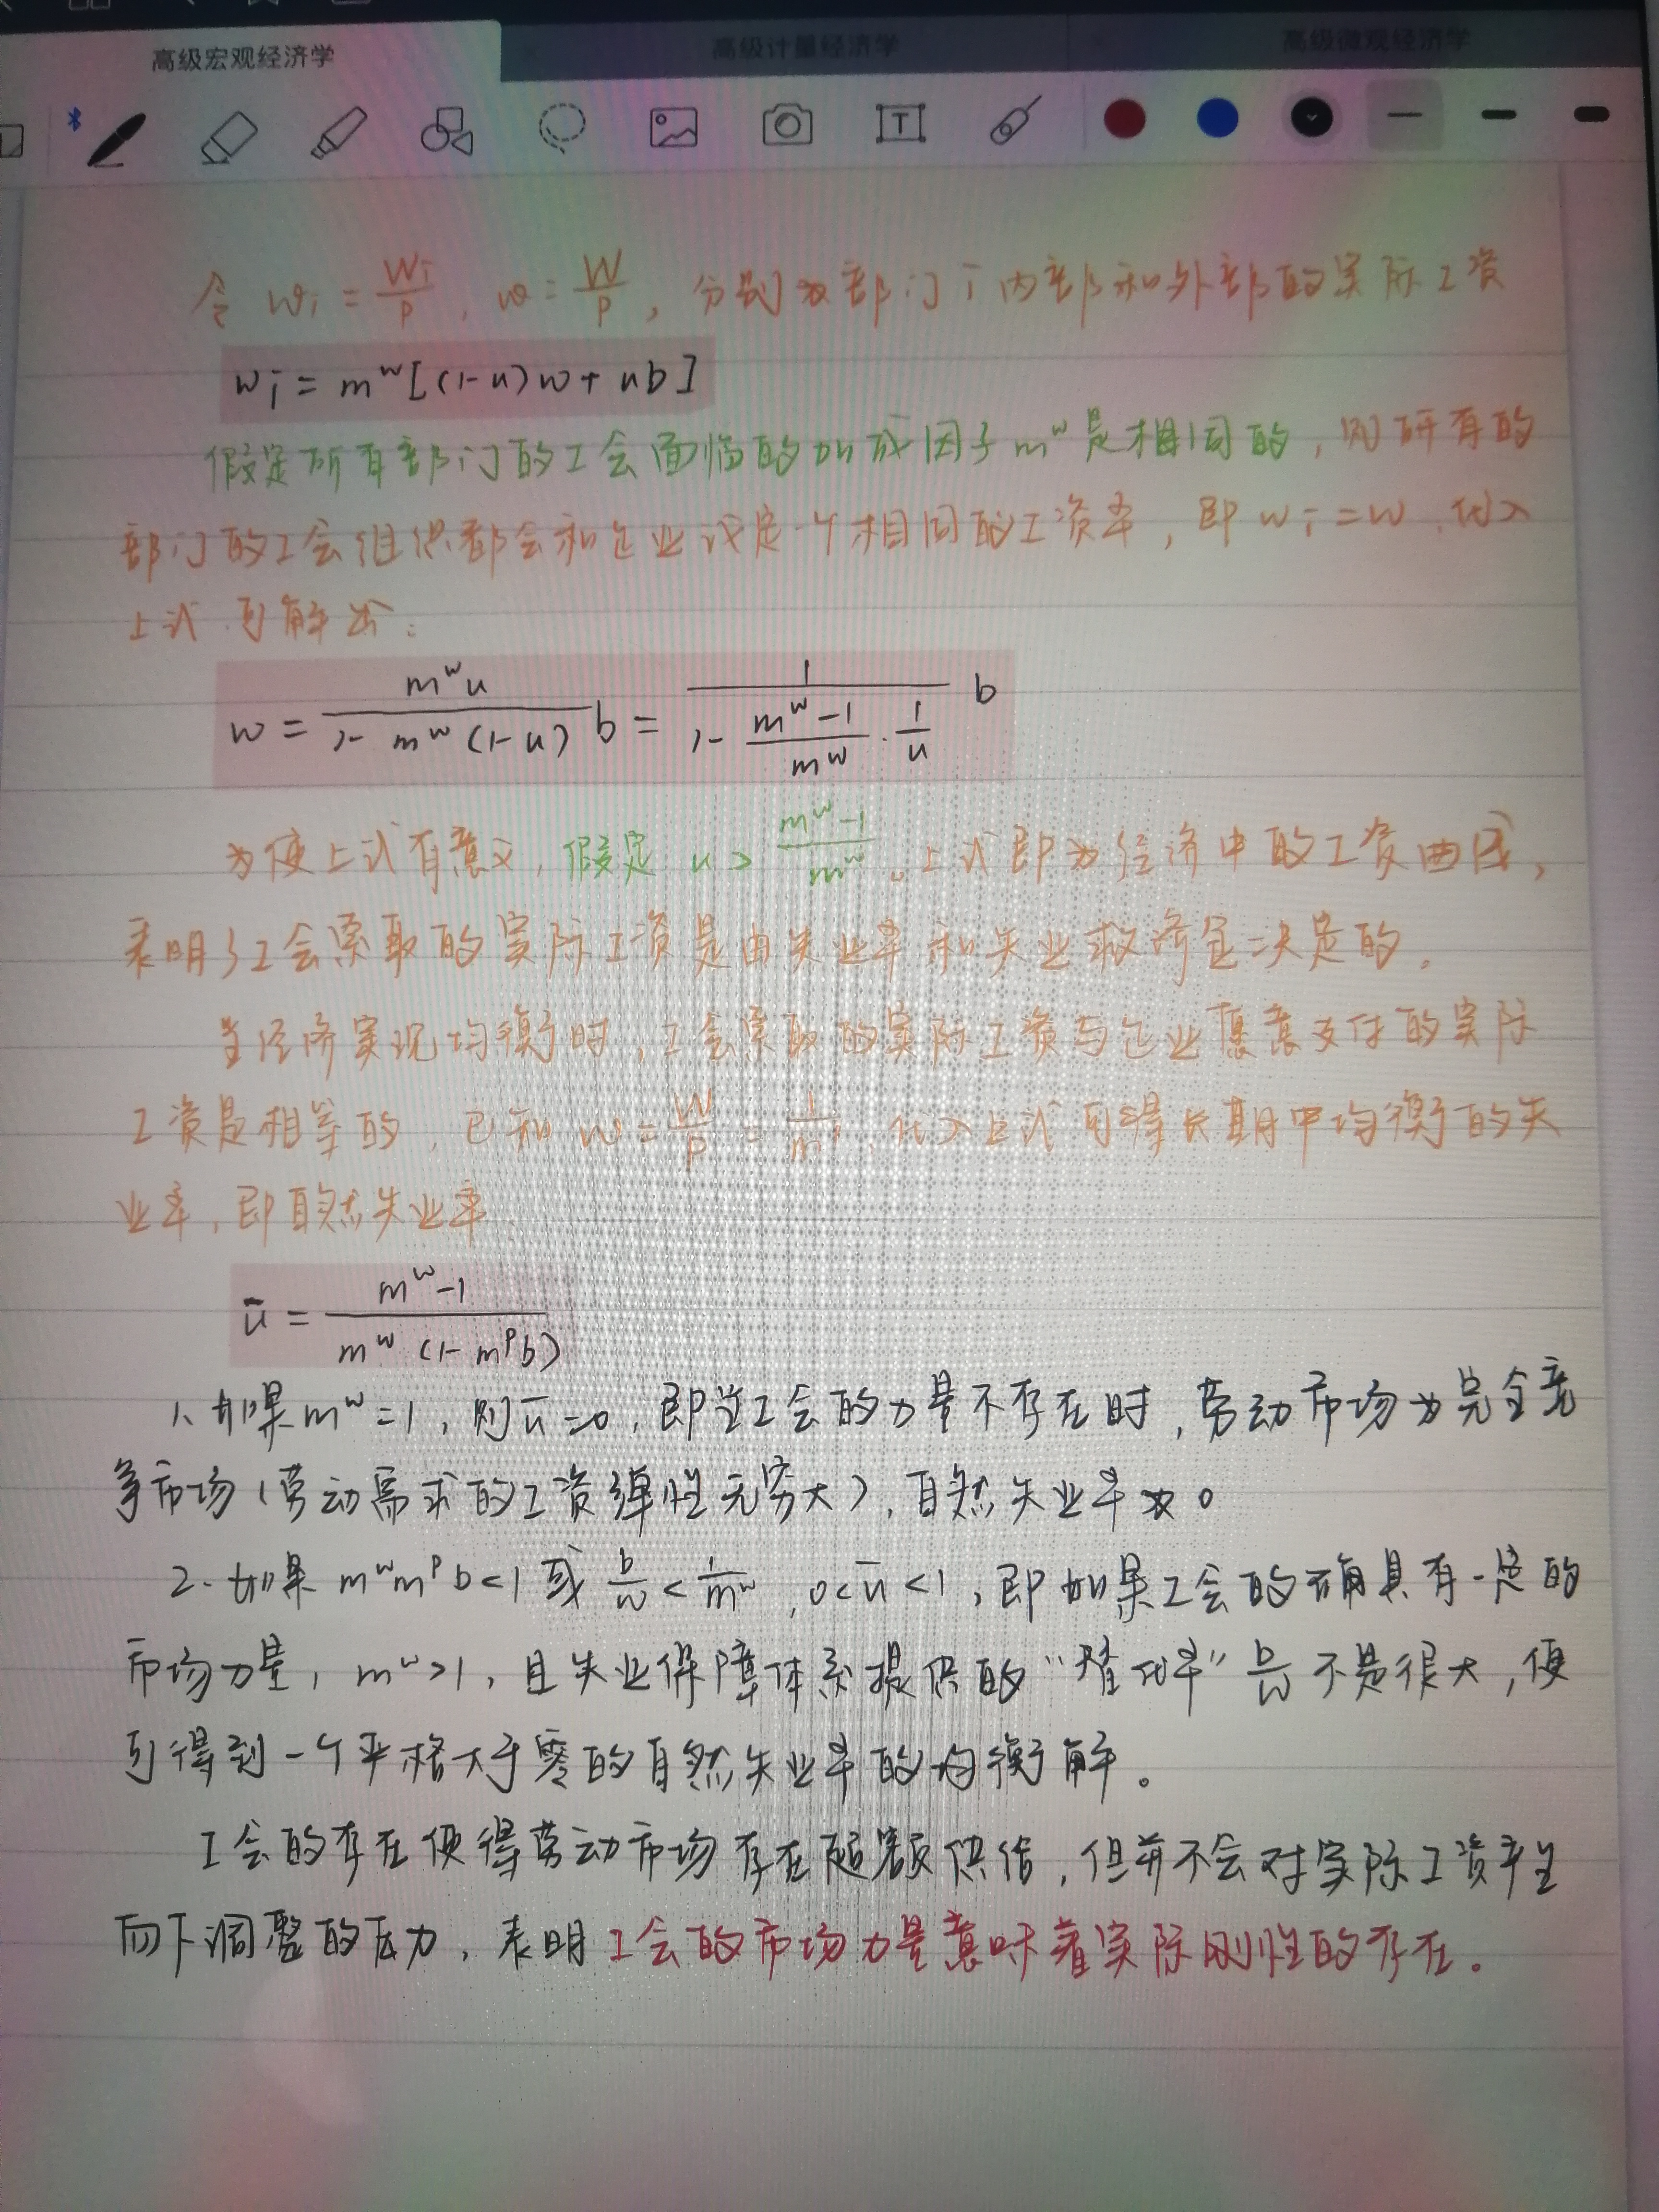 高级宏观经济学 高级计量经济学 高级微观经济学
T
令 wi = Wi/P , w = W/P , 分别为部门i内部和外部的实际工资
wi = m^w[(1-u)w + ub]
假定所有部门的工会面临的加成因子m^w是相同的, 则所有的
部门的工会组织都会和企业议定一个相同的工资率, 即 wi = w, 代入
上式可解出:
w = m^w u / (1- m^w (1-u)) b = 1 / (1- (m^w -1)/m^w · 1/u) b
为使上式有意义, 假定 u > (m^w -1)/m^w 。上式即为经济中的工资曲线,
表明了工会索取的实际工资是由失业率和失业救济金决定的。
当经济实现均衡时, 工会索取的实际工资与企业愿意支付的实际
工资是相等的, 已知 w = W/P = 1/m^p, 代入上式可得长期中均衡的失
业率, 即自然失业率:
ū = (m^w -1) / (m^w (1- m^p b))
1. 如果m^w =1, 则ū=0, 即当工会的力量不存在时, 劳动市场为完全竞
争市场(劳动需求的工资弹性无穷大), 自然失业率为0
2. 如果 m^w m^p b<1 或 b/w < 1/m^w , 0<ū<1, 即如果工会的确具有一定的
市场力量, m^w>1, 且失业保障体系提供的“替代率” b/w 不是很大, 便
可得到一个严格大于零的自然失业率的均衡解。
工会的存在使得劳动市场存在超额供给, 但并不会对实际工资产生
向下调整的压力, 表明工会的市场力量意味着实际刚性的存在。